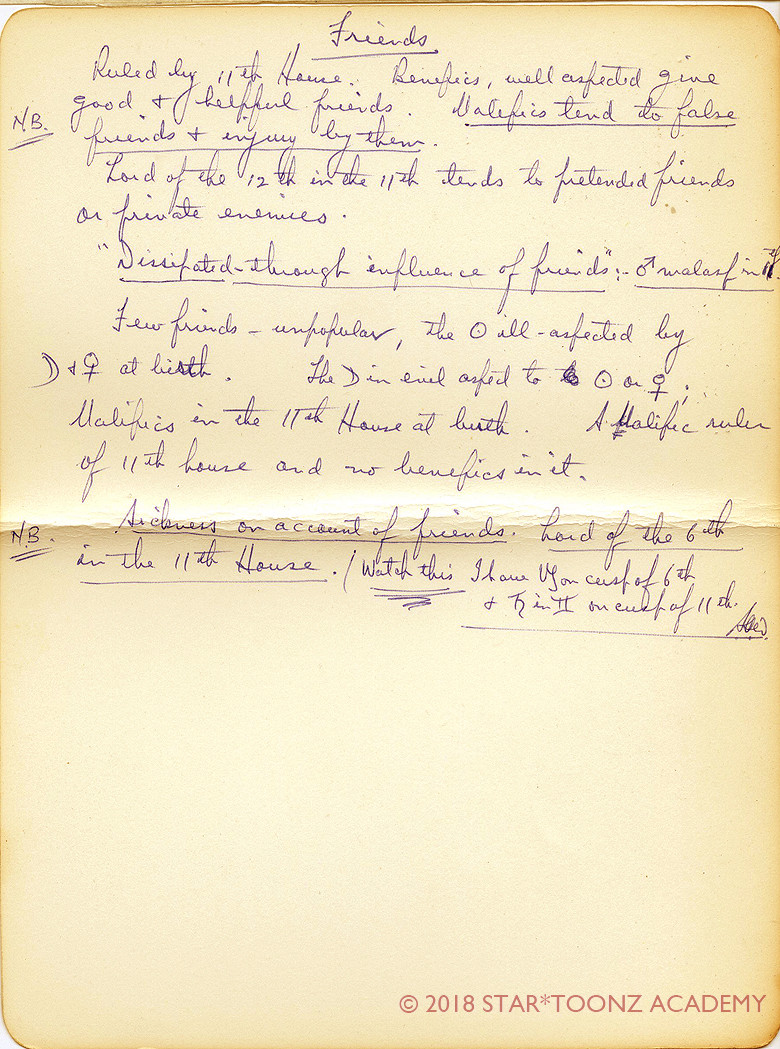 Friends
Ruled by 11th House. Benefics, well aspected give
good & helpful friends. Malefics tend to false
N.B.
friends & injury by them.
Lord of the 12th in the 11th tends to pretended friends
or private enemies.
"Dissipated-through influence of friends":- ♂ malasp in 11th.
Few friends - unpopular, the ☉ ill-aspected by
☽ & ♀ at birth. The ☽ in evil aspect to ☉ or ♀;
Malifics in the 11th House at birth. A Malific ruler
of 11th house and no benefics in it.
N.B.
Sickness on account of friends. Lord of the 6th
in the 11th House. (Watch this I have ♑ on cusp of 6th
& ♄ in ♊ on cusp of 11th.
© 2018 STAR*TOONZ ACADEMY